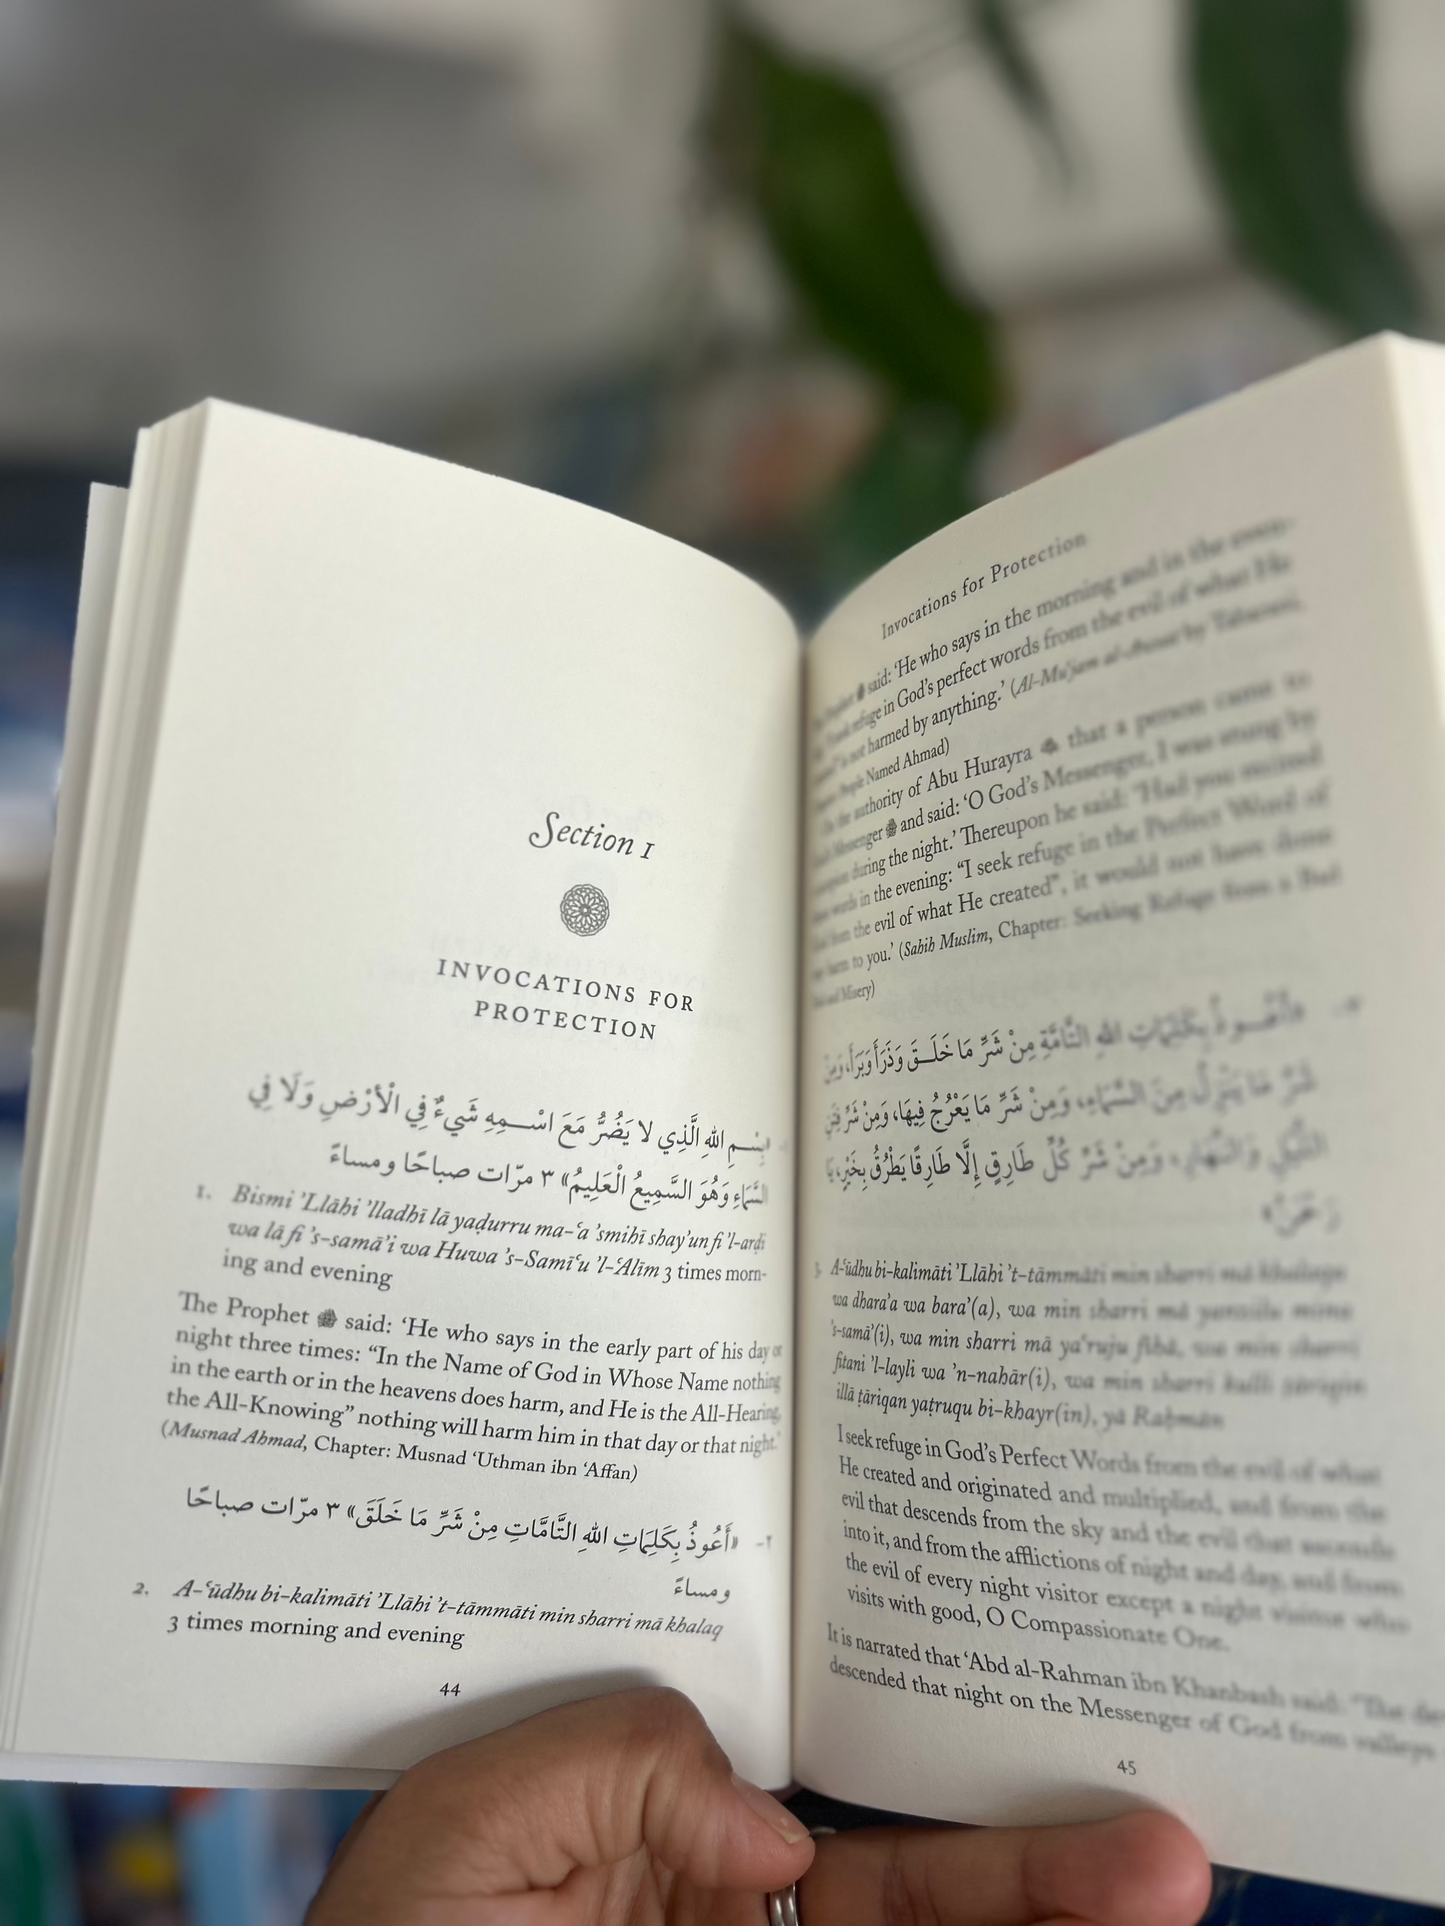 Section 1
INVOCATIONS FOR
PROTECTION
بِسْمِ اللهِ الَّذِي لا يَضُرُّ مَعَ اسْمِهِ شَيءٌ فِي الْأَرْضِ وَلَا فِي
السَّمَاءِ وَهُوَ السَّمِيعُ الْعَلِيمُ» ٣ مرّات صباحًا ومساءً
1. Bismi ’Llāhi ’lladhī lā yaḍurru ma-ʿa ’smihī shay’un fi ’l-arḍi
wa lā fi ’s-samā’i wa Huwa ’s-Samīʿu ’l-ʿAlīm 3 times morn-
ing and evening
The Prophet ﷺ said: ‘He who says in the early part of his day or
night three times: “In the Name of God in Whose Name nothing
in the earth or in the heavens does harm, and He is the All-Hearing,
the All-Knowing” nothing will harm him in that day or that night.’
(Musnad Ahmad, Chapter: Musnad ‘Uthman ibn ‘Affan)
٢- «أَعُوذُ بِكَلِمَاتِ اللهِ التَّامَّاتِ مِنْ شَرِّ مَا خَلَقَ» ٣ مرّات صباحًا
ومساءً
2. A-ʿūdhu bi-kalimāti ’Llāhi ’t-tāmmāti min sharri mā khalaq
3 times morning and evening
44
Invocations for Protection
said: ‘He who says in the morning and in the even-
refuge in God’s perfect words from the evil of what He
is not harmed by anything.’ (Al-Mu‘jam al-Awsat by Tabarani,
People Named Ahmad)
authority of Abu Hurayra that a person came to
Messenger ﷺ and said: ‘O God’s Messenger, I was stung by
during the night.’ Thereupon he said: ‘Had you recited
words in the evening: “I seek refuge in the Perfect Word of
from the evil of what He created”, it would not have done
harm to you.’ (Sahih Muslim, Chapter: Seeking Refuge from a Bad
and Misery)
«أَعُوذُ بِكَلِمَاتِ اللهِ التَّامَّةِ مِنْ شَرِّ مَا خَلَقَ وَذَرَأَ وَبَرَأَ، وَمِنْ
شَرِّ مَا يَنْزِلُ مِنَ السَّمَاءِ، وَمِنْ شَرِّ مَا يَعْرُجُ فِيهَا، وَمِنْ شَرِّ فِتَنِ
اللَّيْلِ وَالنَّهَارِ، وَمِنْ شَرِّ كُلِّ طَارِقٍ إِلَّا طَارِقًا يَطْرُقُ بِخَيْرٍ، يَا
رَحْمَنُ»
3. A-ʿūdhu bi-kalimāti ’Llāhi ’t-tāmmāti min sharri mā khalaqa
wa dhara’a wa bara’(a), wa min sharri mā yanzilu mina
’s-samā’(i), wa min sharri mā yaʿruju fihā, wa min sharri
fitani ’l-layli wa ’n-nahār(i), wa min sharri kulli ṭāriqin
illā ṭāriqan yaṭruqu bi-khayr(in), yā Raḥmān
I seek refuge in God’s Perfect Words from the evil of what
He created and originated and multiplied, and from the
evil that descends from the sky and the evil that ascends
into it, and from the afflictions of night and day, and from
the evil of every night visitor except a night visitor who
visits with good, O Compassionate One.
It is narrated that ‘Abd al-Rahman ibn Khanbash said: “The
descended that night on the Messenger of God from valleys
45